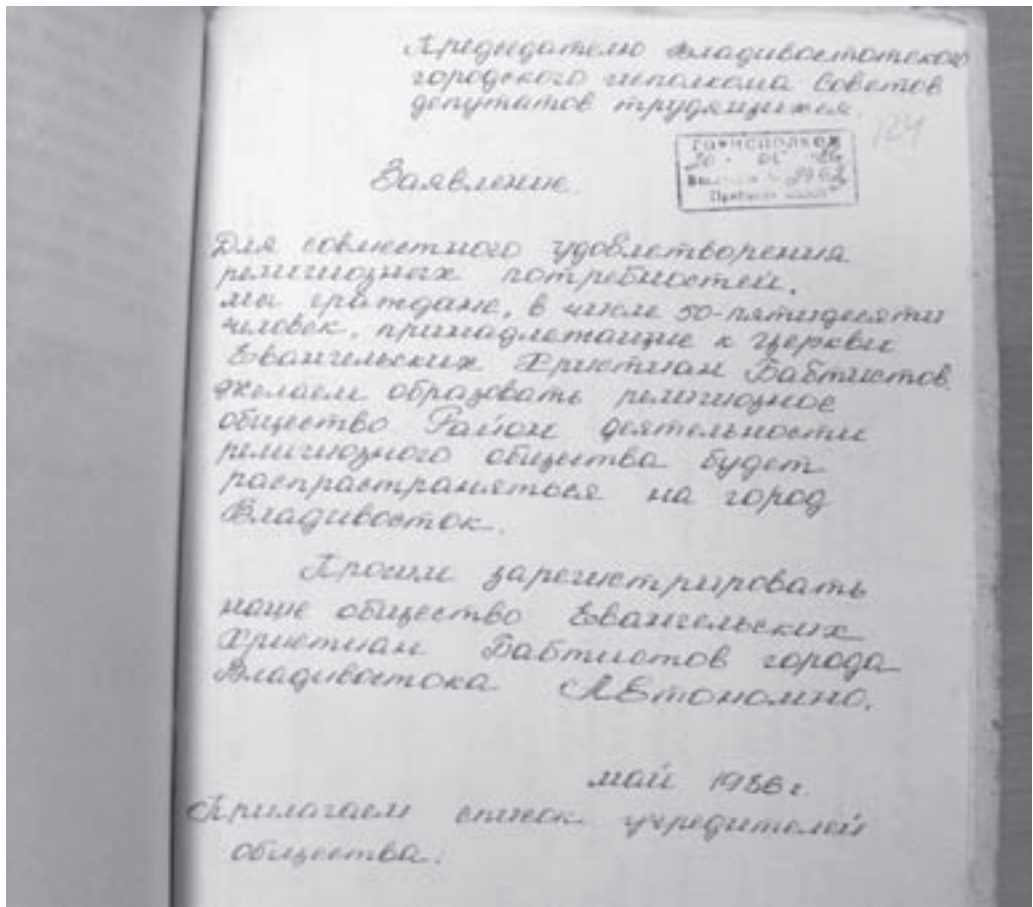 Председателю Владивостокского
городского исполкома Советов
депутатов трудящихся.
124
ГОРИСПОЛКОМ
Заявление.
Для совместного удовлетворения
религиозных потребностей,
мы граждане, в числе 50-пятидесяти
человек, принадлежащие к церкви
Евангельских Христиан Бабтистов
желаем образовать религиозное
общество Район деятельности
религиозного общества будет
распрастраняться на город
Владивосток.
Просим зарегистрировать
наше общество Евангельских
Христиан Бабтистов города
Владивостока Автономно.
май 1986 г.
Прилагаем список учредителей
общества.